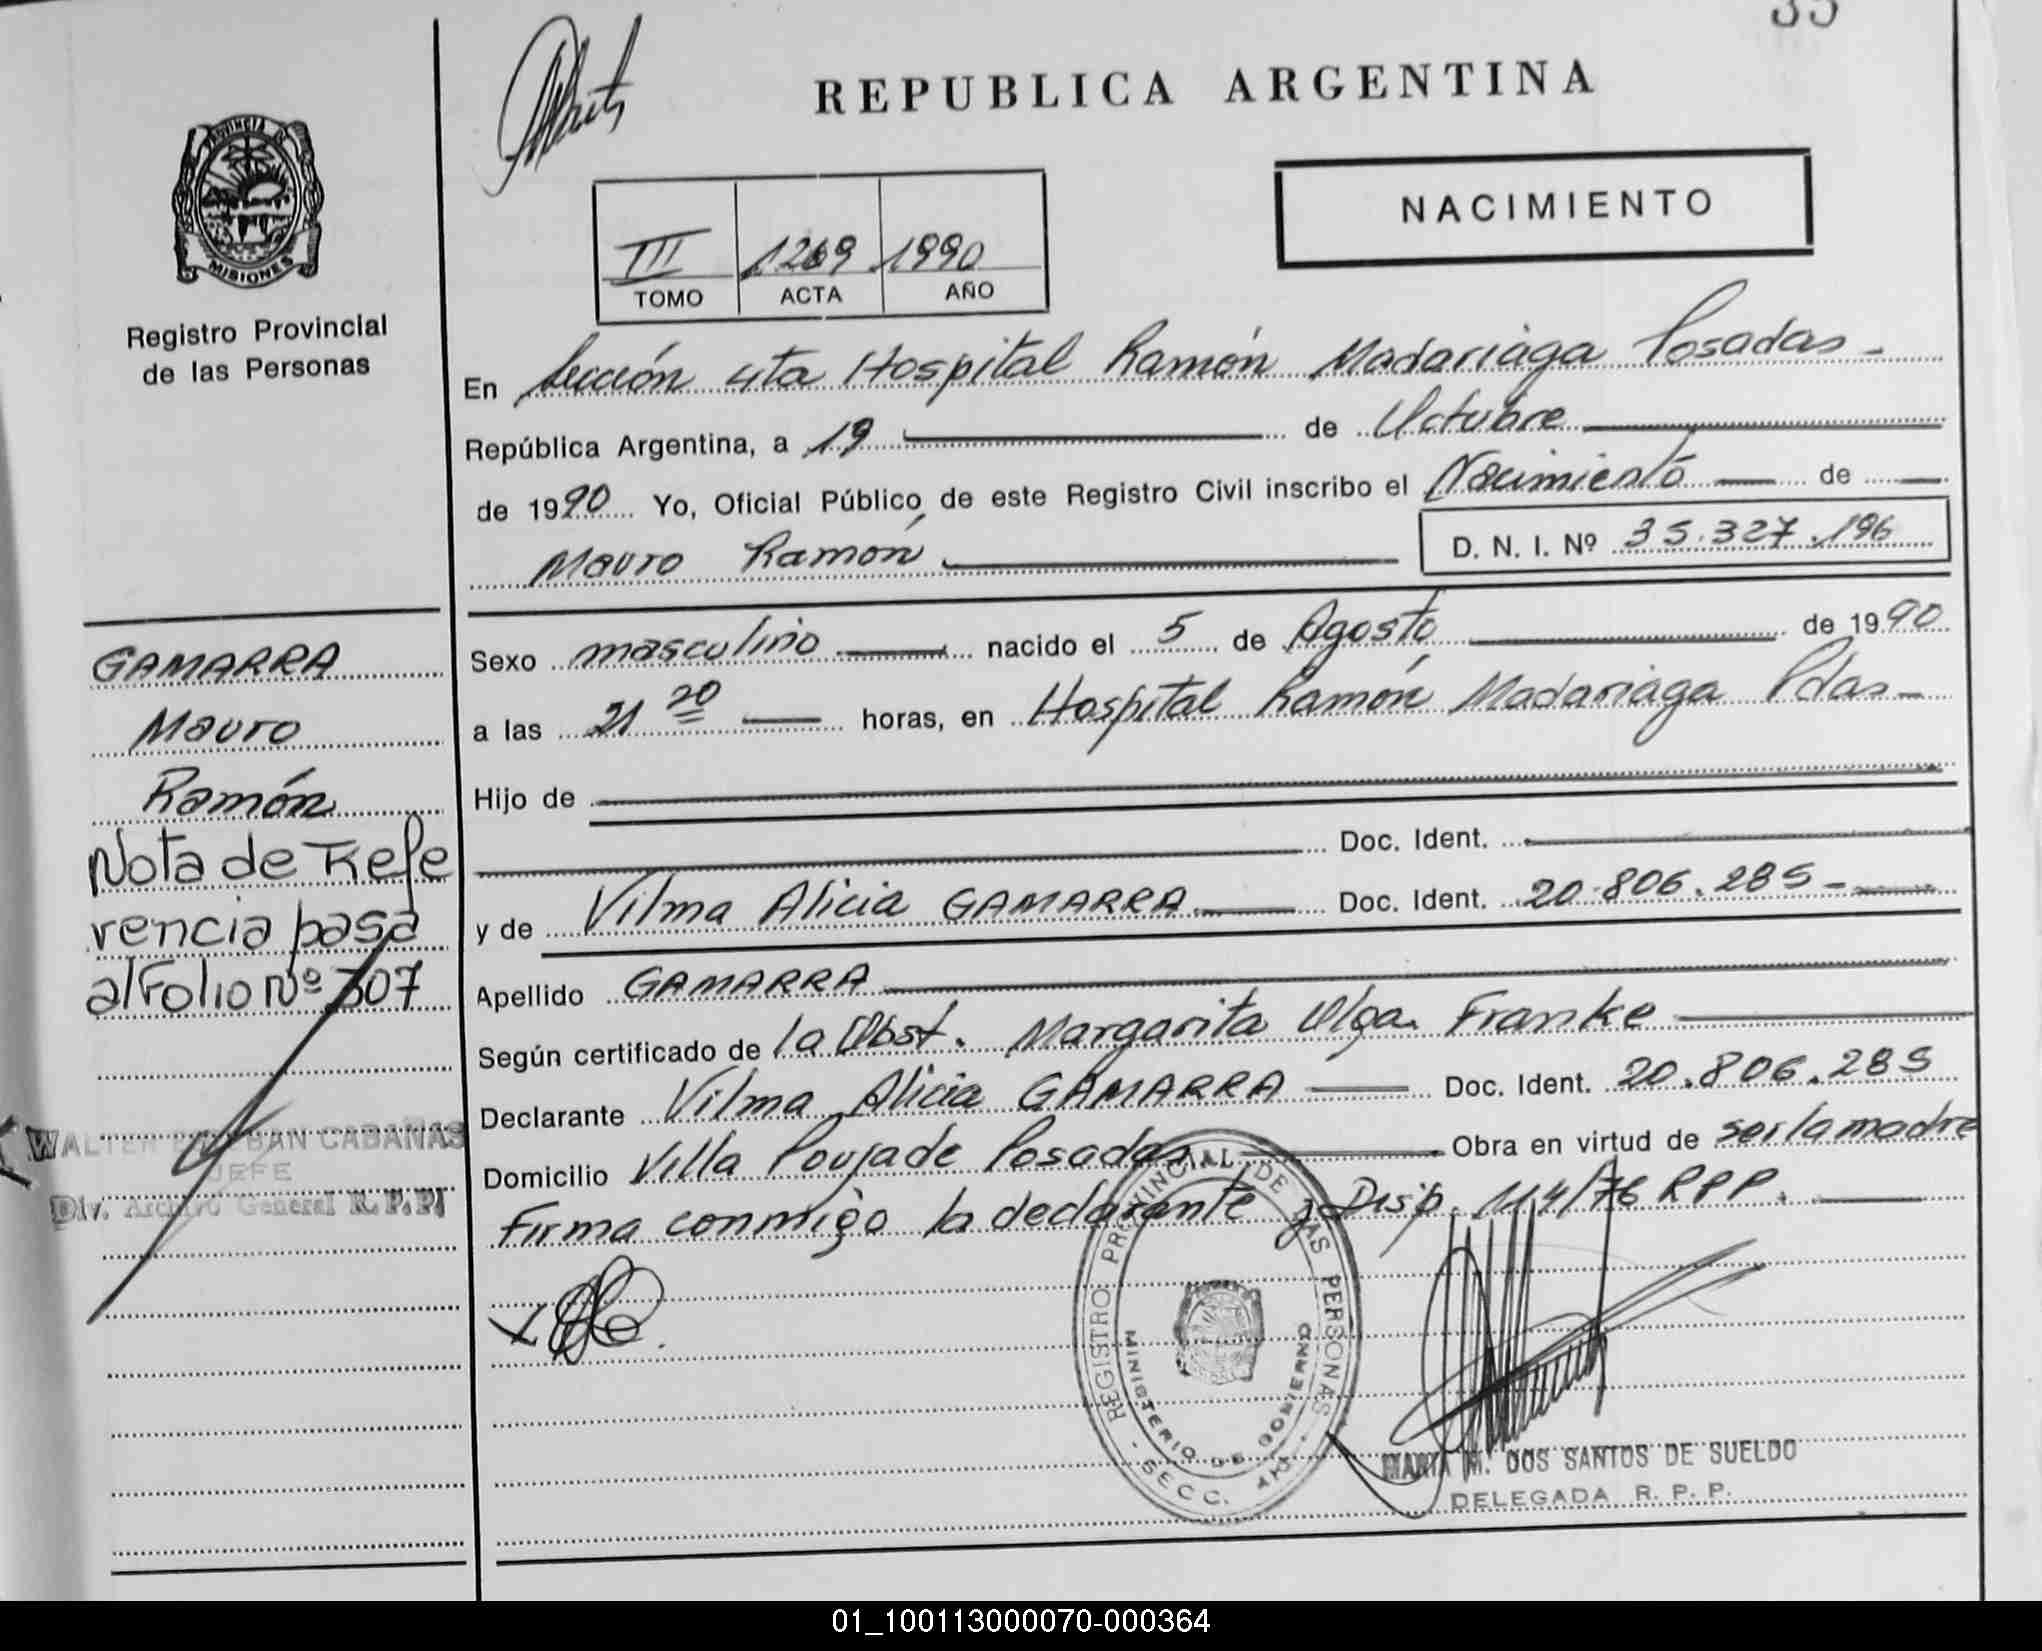 35
REPUBLICA ARGENTINA
NACIMIENTO
PROVINCIA DE
MISIONES
Registro Provincial
de las Personas
III 1269 1990
TOMO ACTA AÑO
En Sección 4ta Hospital Ramón Madariaga Posadas
República Argentina, a 19 de Octubre
de 1990 Yo, Oficial Público de este Registro Civil inscribo el Nacimiento de
Mauro Ramón D. N. I. Nº 35.327.196
GAMARRA
Mauro
Ramón
Nota de Refe
rencia pasa
al Folio Nº 307
WALTER ESTEBAN CABAÑAS
JEFE
Div. Archivo General R. P. P.
Sexo masculino nacido el 5 de Agosto de 1990
a las 21 20 horas, en Hospital Ramón Madariaga Pdas
Hijo de
Doc. Ident.
y de Vilma Alicia GAMARRA Doc. Ident. 20.806.285
Apellido GAMARRA
Según certificado de la Obst. Margarita Olga Franke
Declarante Vilma Alicia GAMARRA Doc. Ident. 20.806.285
Domicilio Villa Poujade Posadas Obra en virtud de ser la madre
Firma conmigo la declarante y Disp. 114/76 RPP.
REGISTRO PROVINCIAL DE LAS PERSONAS
MINISTERIO DE GOBIERNO
SECC. 4ta.
MARTA M. DOS SANTOS DE SUELDO
DELEGADA R. P. P.
01_100113000070-000364